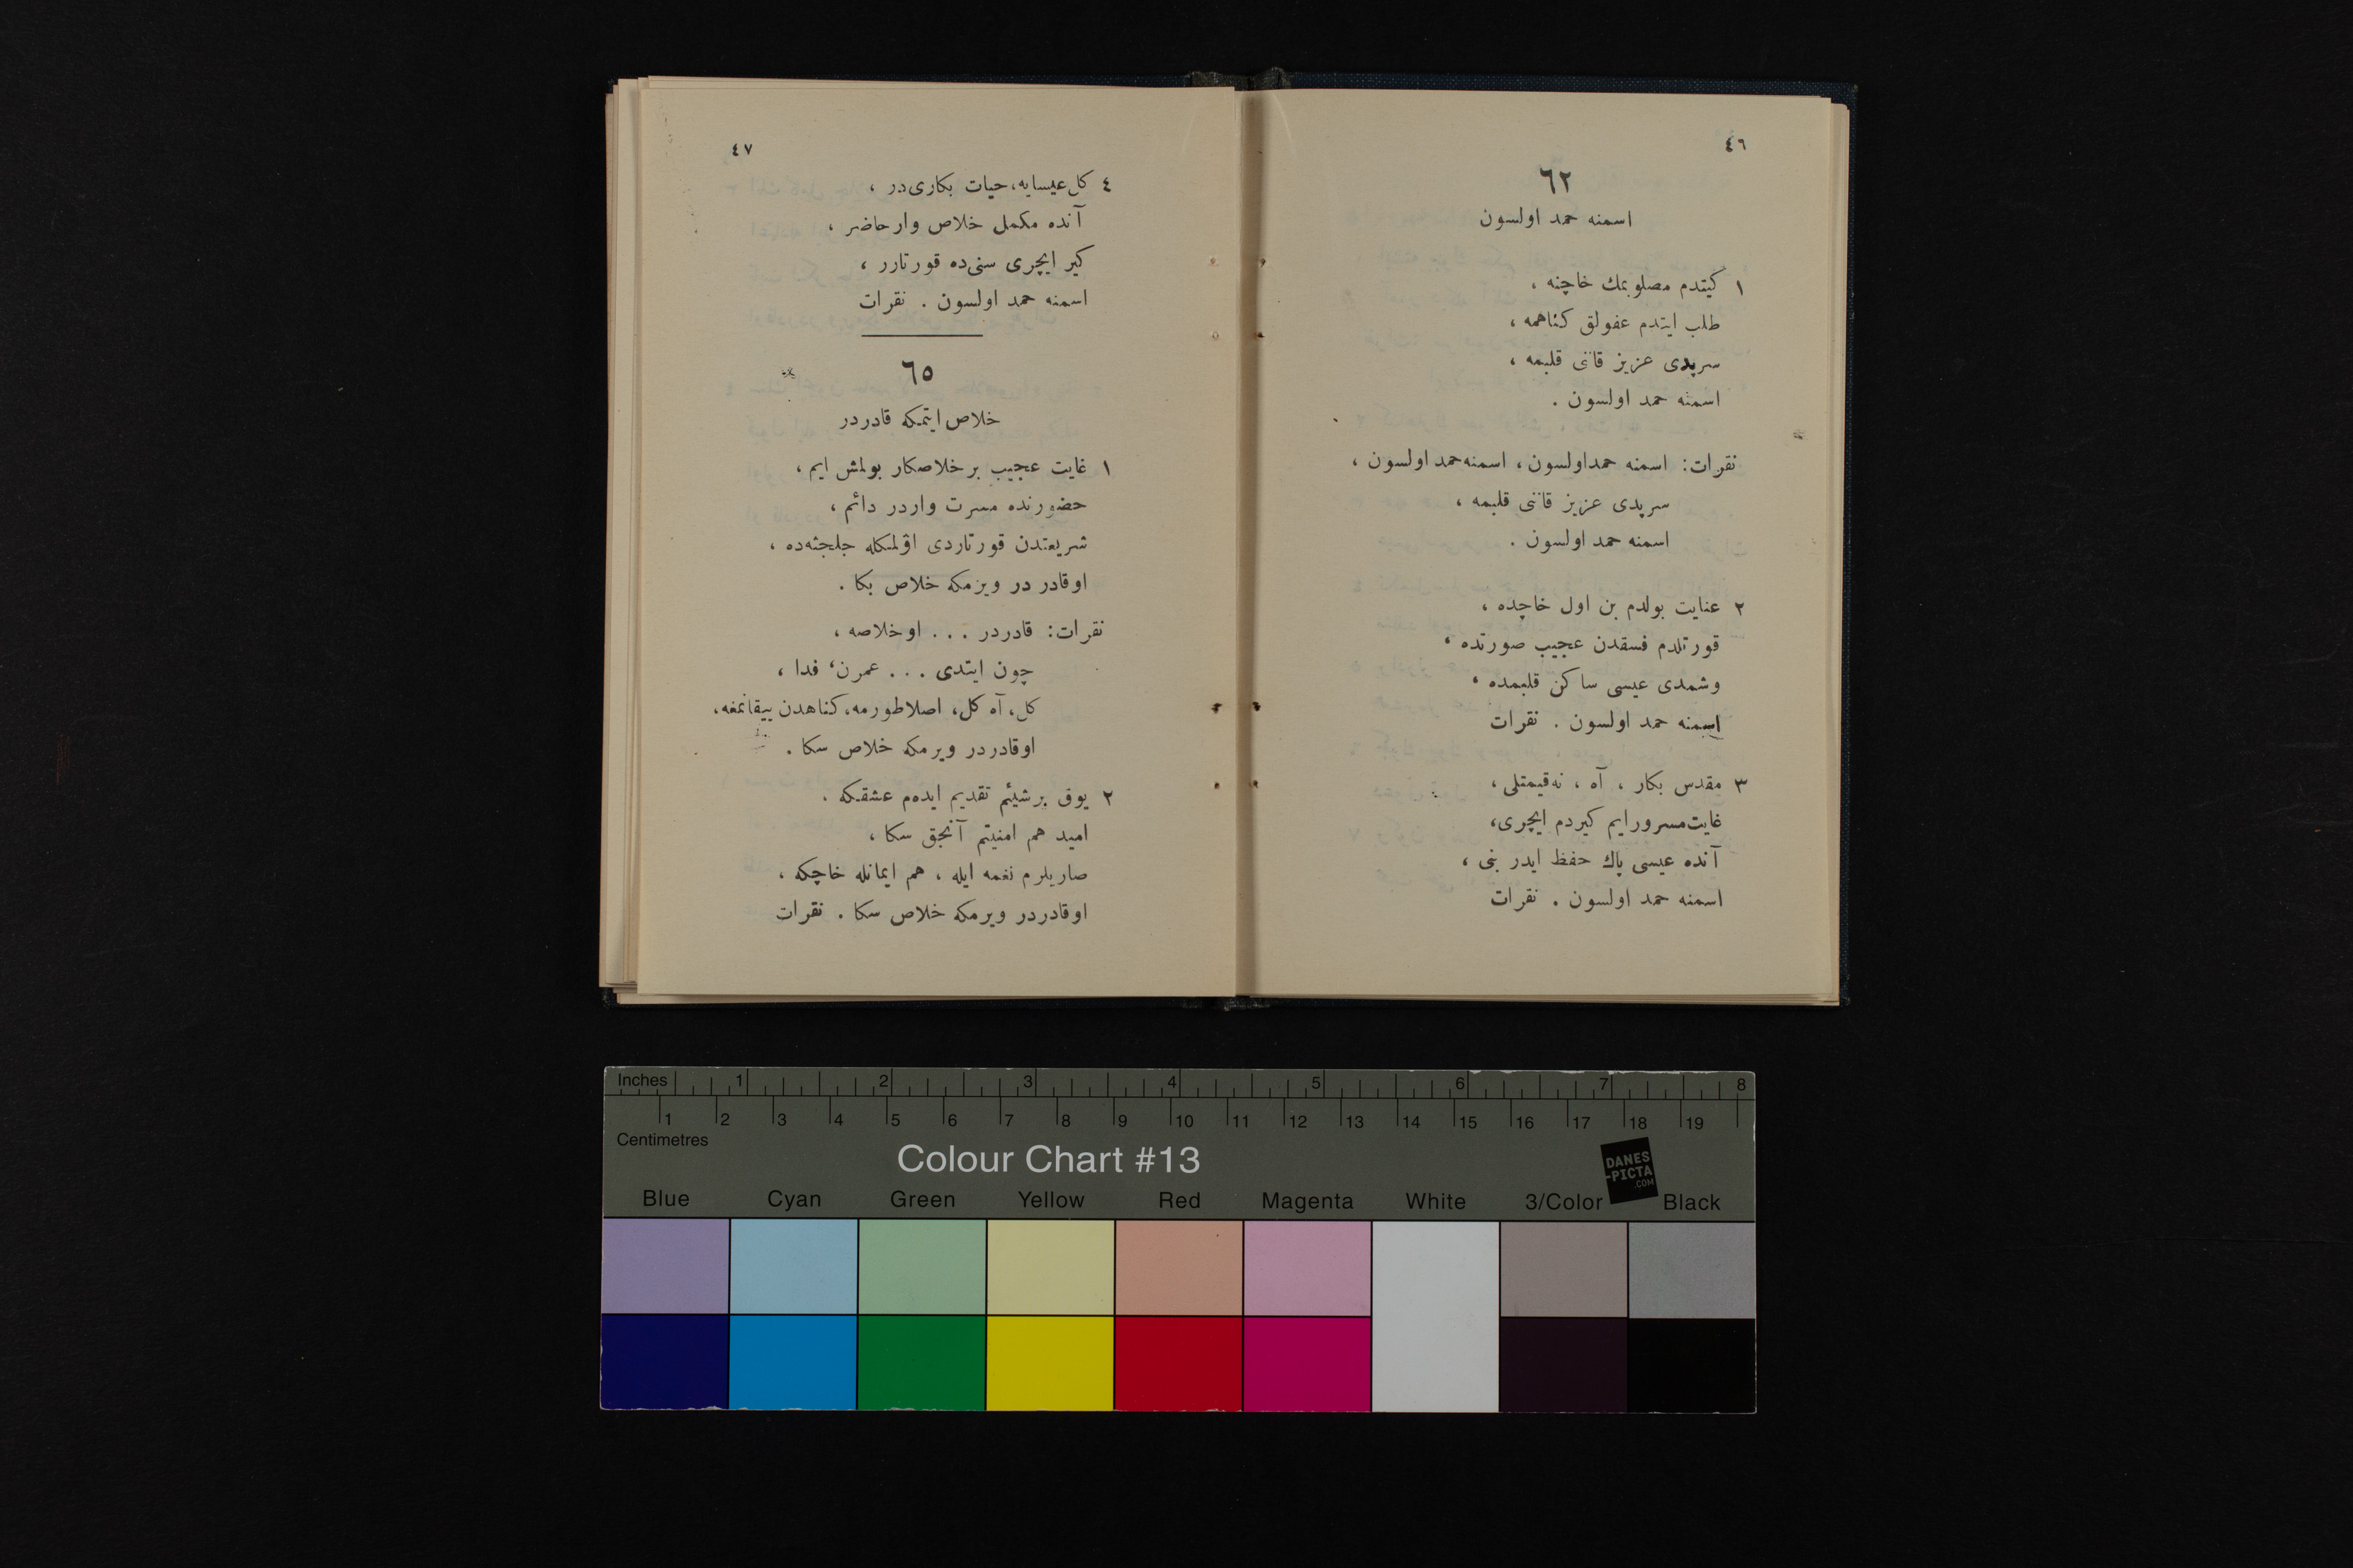 ٤٦
٦٢
اسمنه حمد اولسون
١ كيتدم مصلوبمك خاچنه ،
طلب ايتدم عفولق كناهمه ،
سرپدى عزيز قاننى قلبمه ،
اسمنه حمد اولسون .
نقرات: اسمنه حمداولسون ، اسمنه حمد اولسون ،
سرپدى عزيز قاننى قلبمه ،
اسمنه حمد اولسون .
٢ عنايت بولدم بن اول خاچده ،
قورتلدم فسقدن عجيب صورتده ،
وشمدى عيسى ساكن قلبمده ،
اسمنه حمد اولسون . نقرات
٣ مقدس بكار ، آه ، نه قيمتلى ،
غايت مسرورايم كيردم ايچرى،
آنده عيسى پاك حفظ ايدر بنى ،
اسمنه حمد اولسون . نقرات
٤٧
٤ كل عيسايه، حيات بكارى در ،
آنده مكمل خلاص وار حاضر ،
كير ايچرى سنى ده قورتارر ،
اسمنه حمد اولسون . نقرات
٦٥
خلاص ايتمكه قادردر
١ غايت عجيب برخلاصكار بولمش ايم ،
حضورنده مسرت واردر دائم ،
شريعتدن قورتاردى اۋلمكله جلجثه ده ،
اوقادر در ويرمكه خلاص بكا .
نقرات: قادردر . . . اوخلاصه ،
چون ايتدى . . . عمرن، فدا ،
كل، آه كل، اصلاطورمه، كناهدن ييقانمغه،
اوقادردر ويرمكه خلاص سكا .
٢ يوق برشيئم تقديم ايدهم عشقكه .
اميد هم امنيتم آنجق سكا ،
صاريلرم نغمه ايله ، هم ايمانله خاچكه ،
اوقادردر ويرمكه خلاص سكا . نقرات
Inches 1 2 3 4 5 6 7 8
1 2 3 4 5 6 7 8 9 10 11 12 13 14 15 16 17 18 19
Centimetres
Colour Chart #13
DANES
-PICTA
.COM
Blue Cyan Green Yellow Red Magenta White 3/Color Black